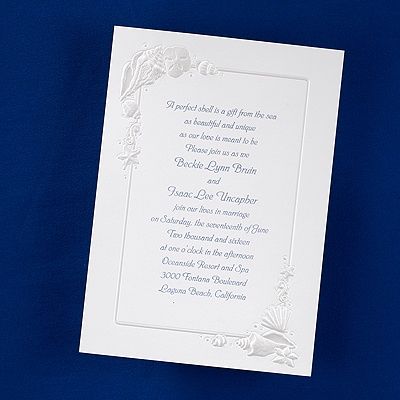 A perfect shell is a gift from the sea
as beautiful and unique
as our love is meant to be
Please join us as we
Beckie Lynn Bruin
and
Isaac Lee Uncapher
join our lives in marriage
on Saturday, the seventeenth of June
Two thousand and sixteen
at one o'clock in the afternoon
Oceanside Resort and Spa
3000 Fontana Boulevard
Laguna Beach, California